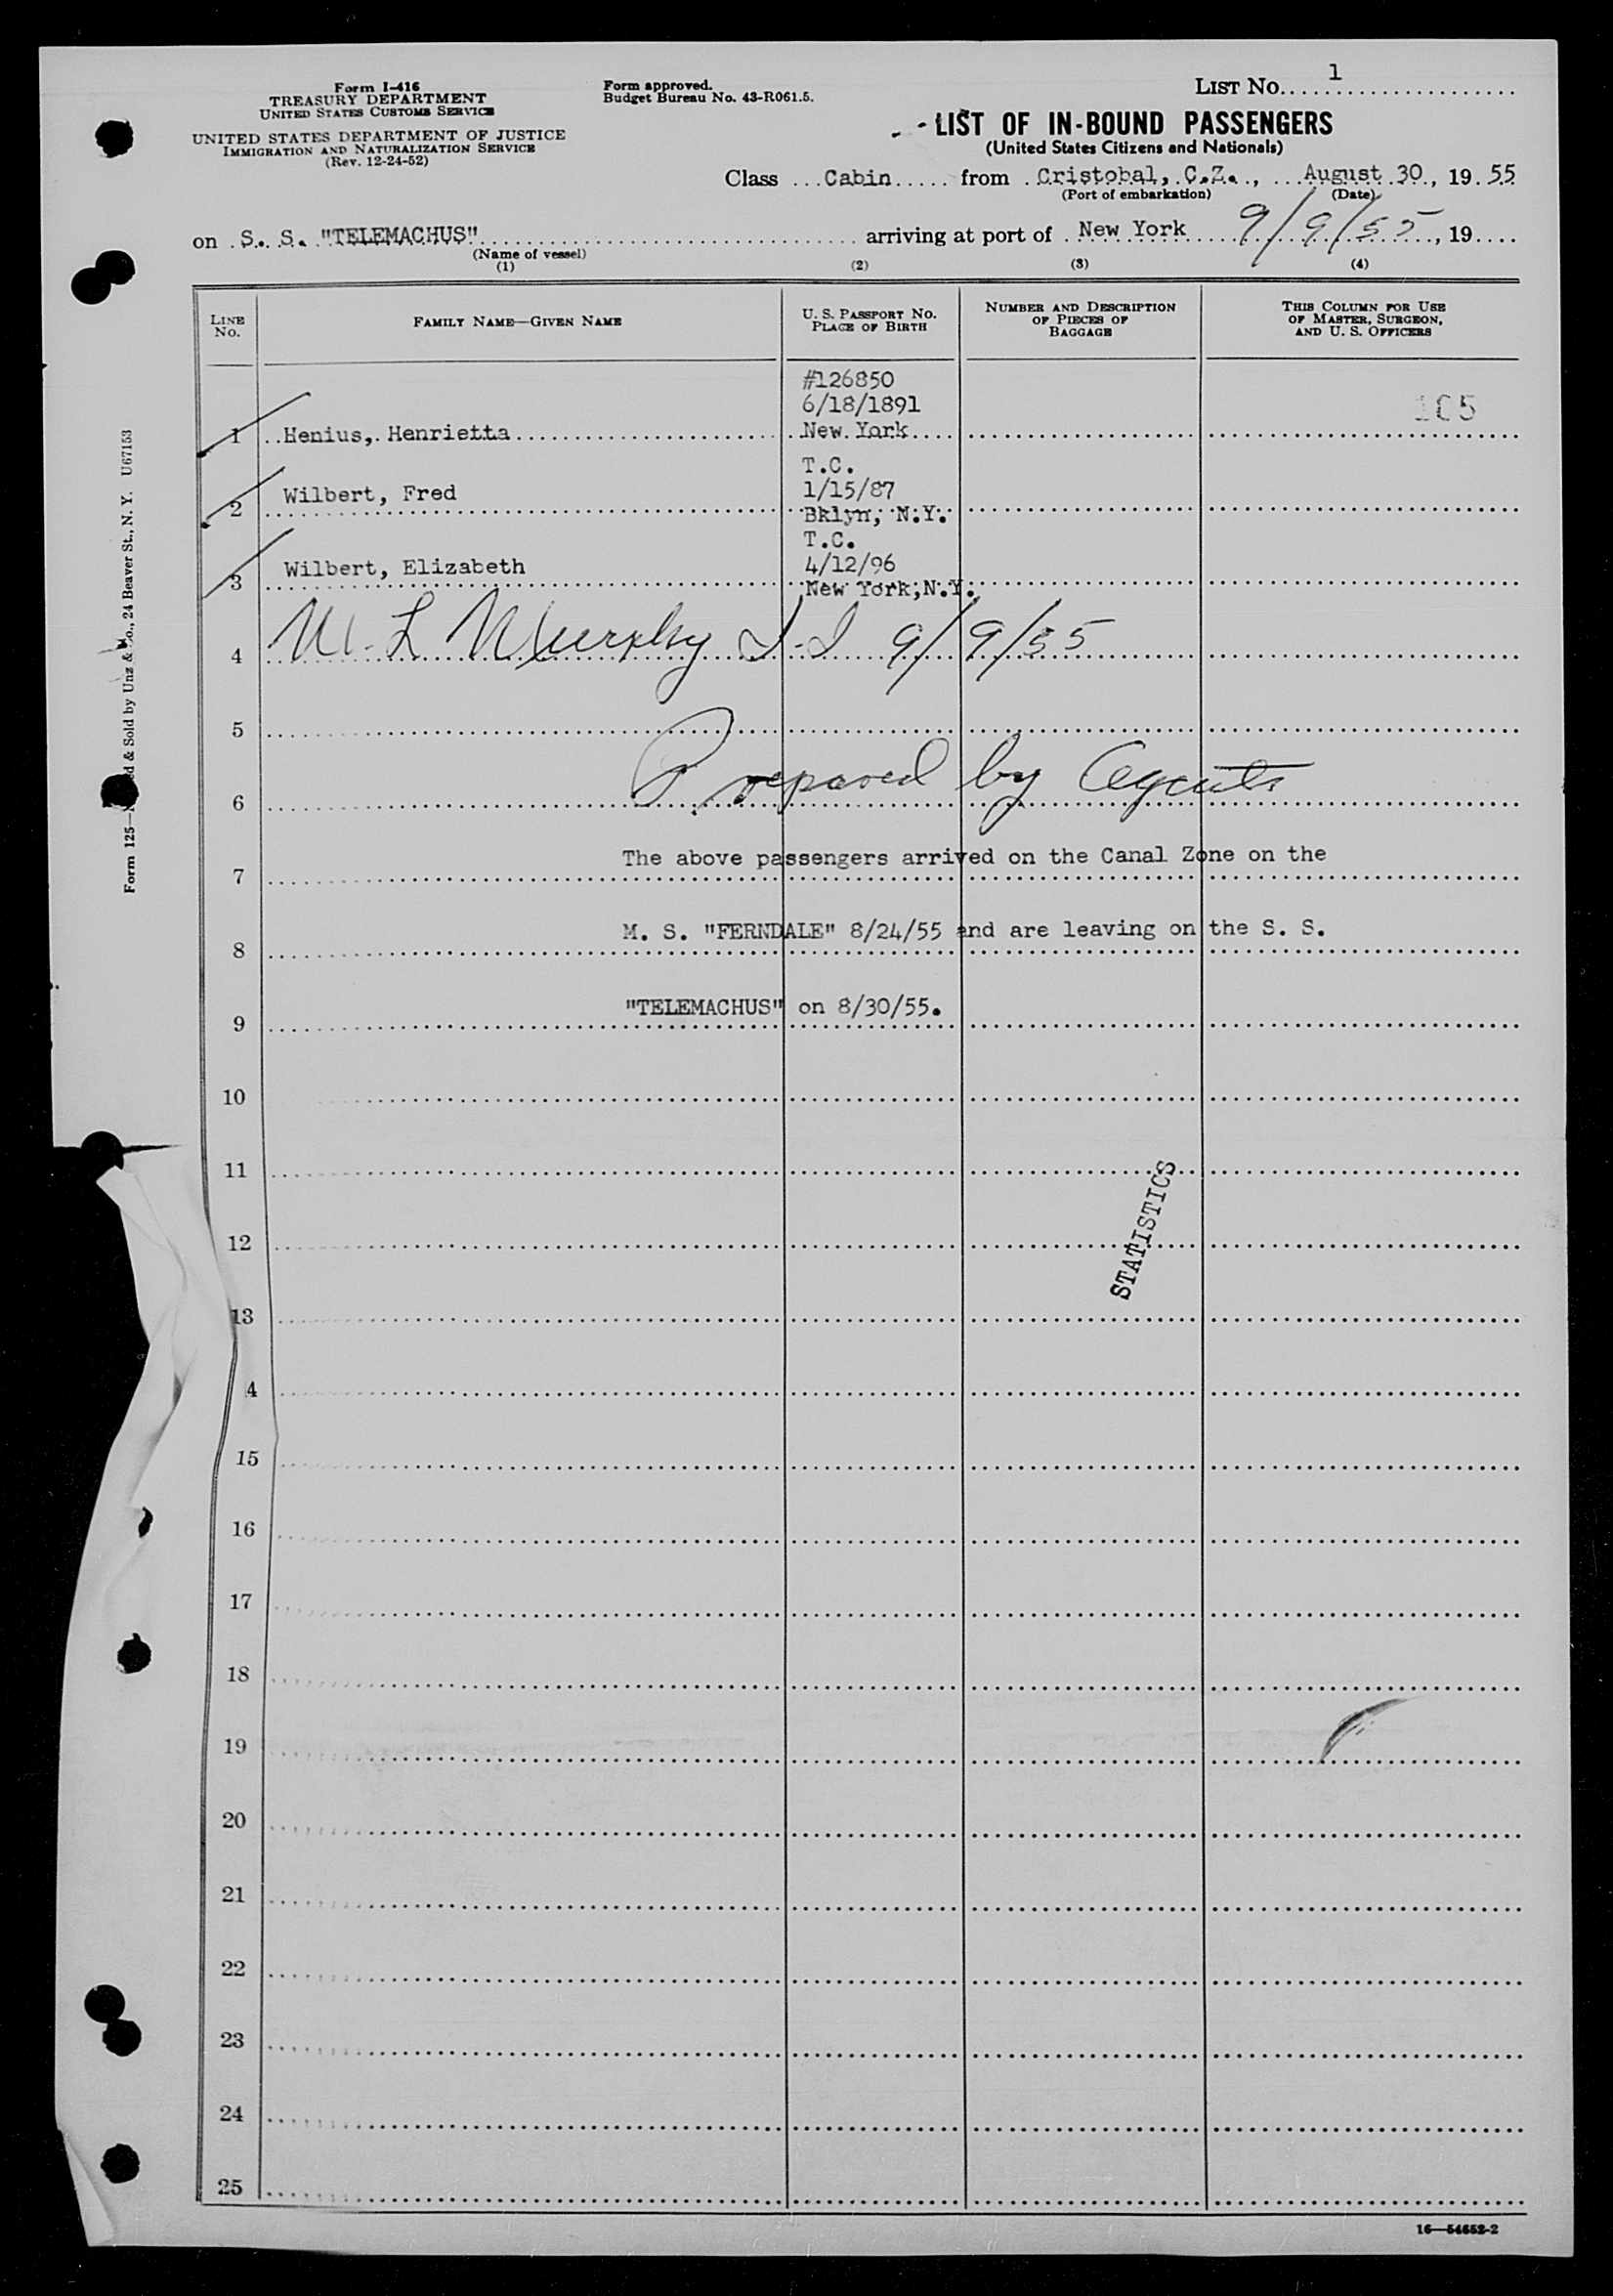 Form I-416
TREASURY DEPARTMENT
UNITED STATES CUSTOMS SERVICE
UNITED STATES DEPARTMENT OF JUSTICE
IMMIGRATION AND NATURALIZATION SERVICE
(Rev. 12-24-52)
Form approved.
Budget Bureau No. 43-R061.5.
LIST No. 1
LIST OF IN-BOUND PASSENGERS
(United States Citizens and Nationals)
Class Cabin from Cristobal, C.Z., August 30, 19 55
(Port of embarkation) (Date)
on S. S. "TELEMACHUS" arriving at port of New York 9/9/55, 19
(Name of vessel)
(1) (2) (3) (4)
LINE No.
FAMILY NAME—GIVEN NAME
U. S. PASSPORT No.
PLACE OF BIRTH
NUMBER AND DESCRIPTION
OF PIECES OF
BAGGAGE
THIS COLUMN FOR USE
OF MASTER, SURGEON,
AND U. S. OFFICERS
#126850
6/18/1891
105
1 Henius, Henrietta New York
T.C.
2 Wilbert, Fred 1/15/87
Bklyn, N.Y.
T.C.
3 Wilbert, Elizabeth 4/12/96
New York, N.Y.
4 Murphy 9/9/55
5
6 Prepared by Agents
7 The above passengers arrived on the Canal Zone on the
8 M. S. "FERNDALE" 8/24/55 and are leaving on the S. S.
9 "TELEMACHUS" on 8/30/55.
10
11
STATISTICS
12
13
4
15
16
17
18
19
20
21
22
23
24
25
16—54652-2
Form 125— & Sold by Unz & Co., 24 Beaver St., N. Y. U67153